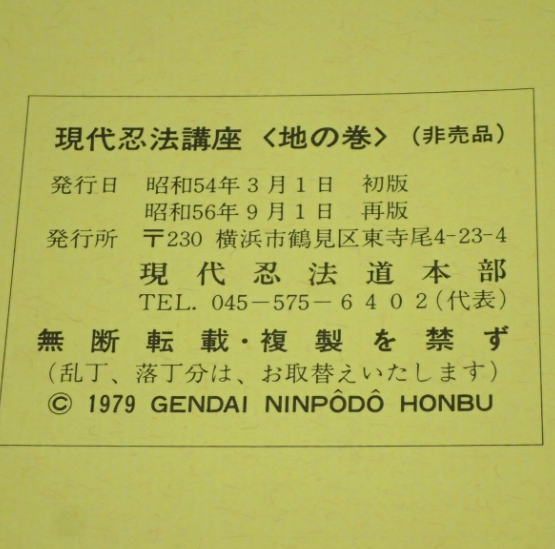 現代忍法講座〈地の巻〉(非売品)
発行日 昭和54年3月1日 初版
昭和56年9月1日 再版
発行所 〒230 横浜市鶴見区東寺尾4-23-4
現代忍法道本部
TEL. 045-575-6402(代表)
無断転載・複製を禁ず
(乱丁、落丁分は、お取替えいたします)
© 1979 GENDAI NINPÔDÔ HONBU